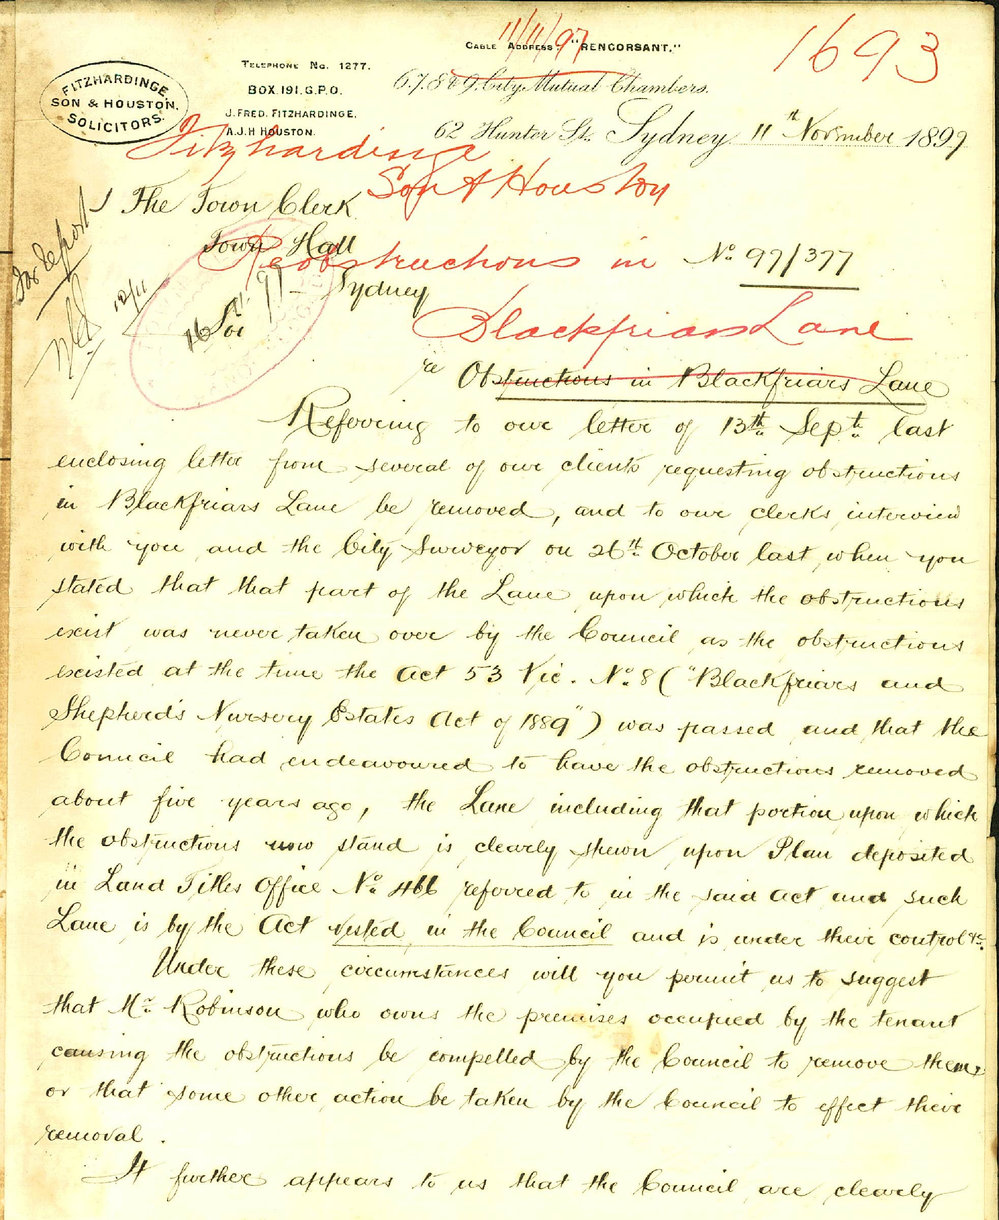 11/11/97
1693
CABLE ADDRESS: "RENCORSANT."
TELEPHONE No. 1277.
BOX 191, G.P.O.
J. FRED. FITZHARDINGE.
A.J.H. HOUSTON.
FITZHARDINGE, SON & HOUSTON. SOLICITORS.
6.7.8 & 9. City Mutual Chambers.
62 Hunter St. Sydney 11th November 1897
Fitzhardinge
Son & Houston
The Town Clerk
Town Hall
Sydney
For report
12/11
16 11. 97
Sir
Re obstructions in
No 97/377
Blackfriars Lane
re Obstructions in Blackfriars Lane
Referring to our letter of 13th Sept. last
enclosing letter from several of our clients requesting obstructions
in Blackfriars Lane be removed, and to our clerks interview
with you and the City Surveyor on 26th October last, when you
stated that that part of the Lane upon which the obstructions
exist was never taken over by the Council as the obstructions
existed at the time the Act 53 Vic. No. 8 ("Blackfriars and
Shepherd's Nursery Estates Act of 1889") was passed and that the
Council had endeavoured to have the obstructions removed
about five years ago, the Lane including that portion upon which
the obstructions now stand is clearly shewn upon Plan deposited
in Land Titles Office No. 466 referred to in the said Act and such
Lane is by the Act vested in the Council and is under their control &c.
Under these circumstances will you permit us to suggest
that Mr. Robinson who owns the premises occupied by the tenant
causing the obstructions be compelled by the Council to remove them
or that some other action be taken by the Council to effect their
removal.
It further appears to us that the Council are clearly